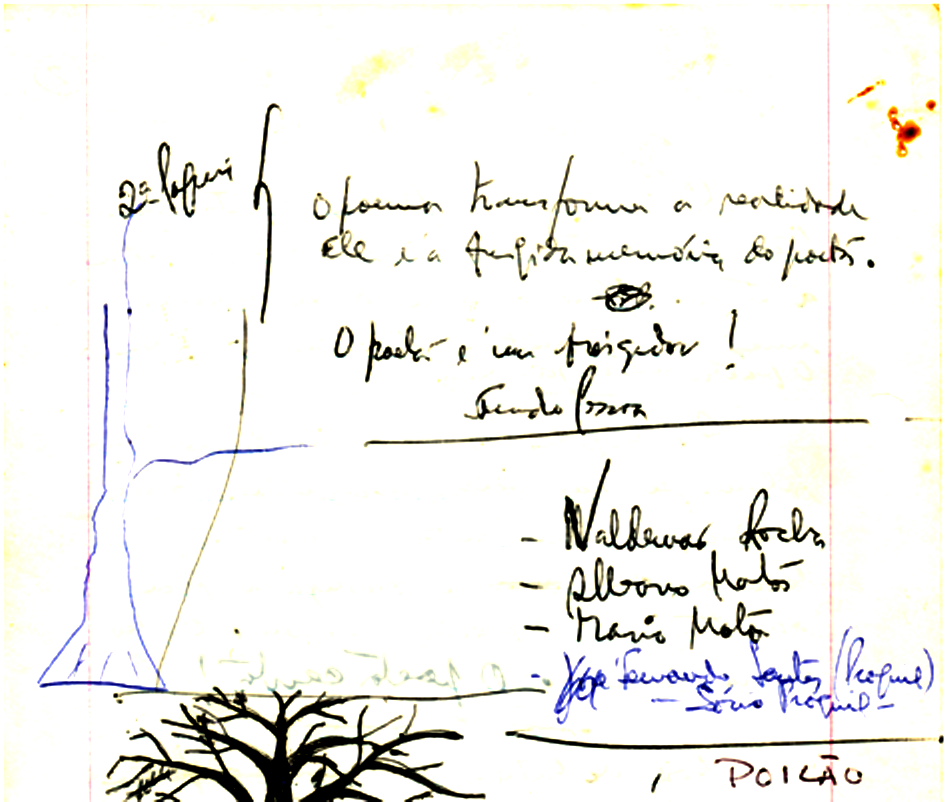 2ª Página
O poema transforma a realidade
Ele é a fingida memória do poeta.
O poeta é um fingidor!
Fernando Pessoa
- Waldemar Rocha
- Albano Matos
- Mario Mota
- José Fernando Santos (Proquil)
- Sócio Proquil -
POILÃO